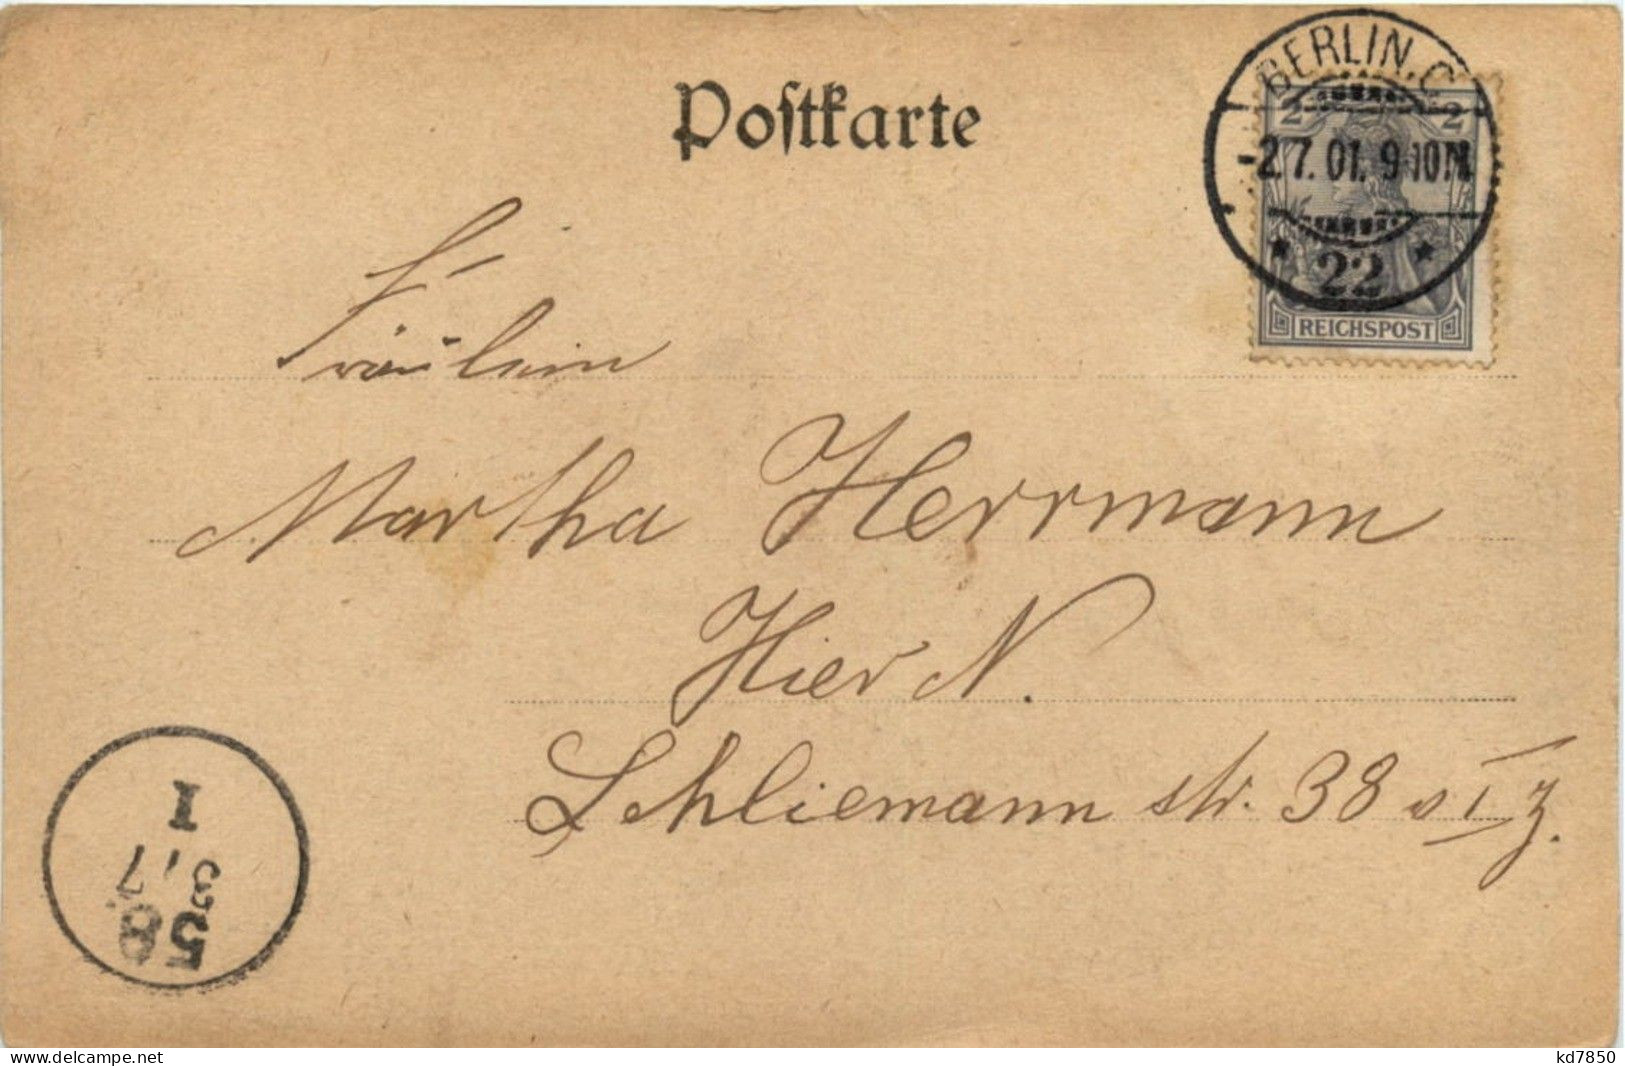 Postkarte
BERLIN.C.
2 2
-2.7.01. 9-10N.
* 22 *
REICHSPOST
Fräulein
Martha Herrmann
Hier N.
Schliemann str. 38 v I
I
3/7
58
www.delcampe.net
kd7850